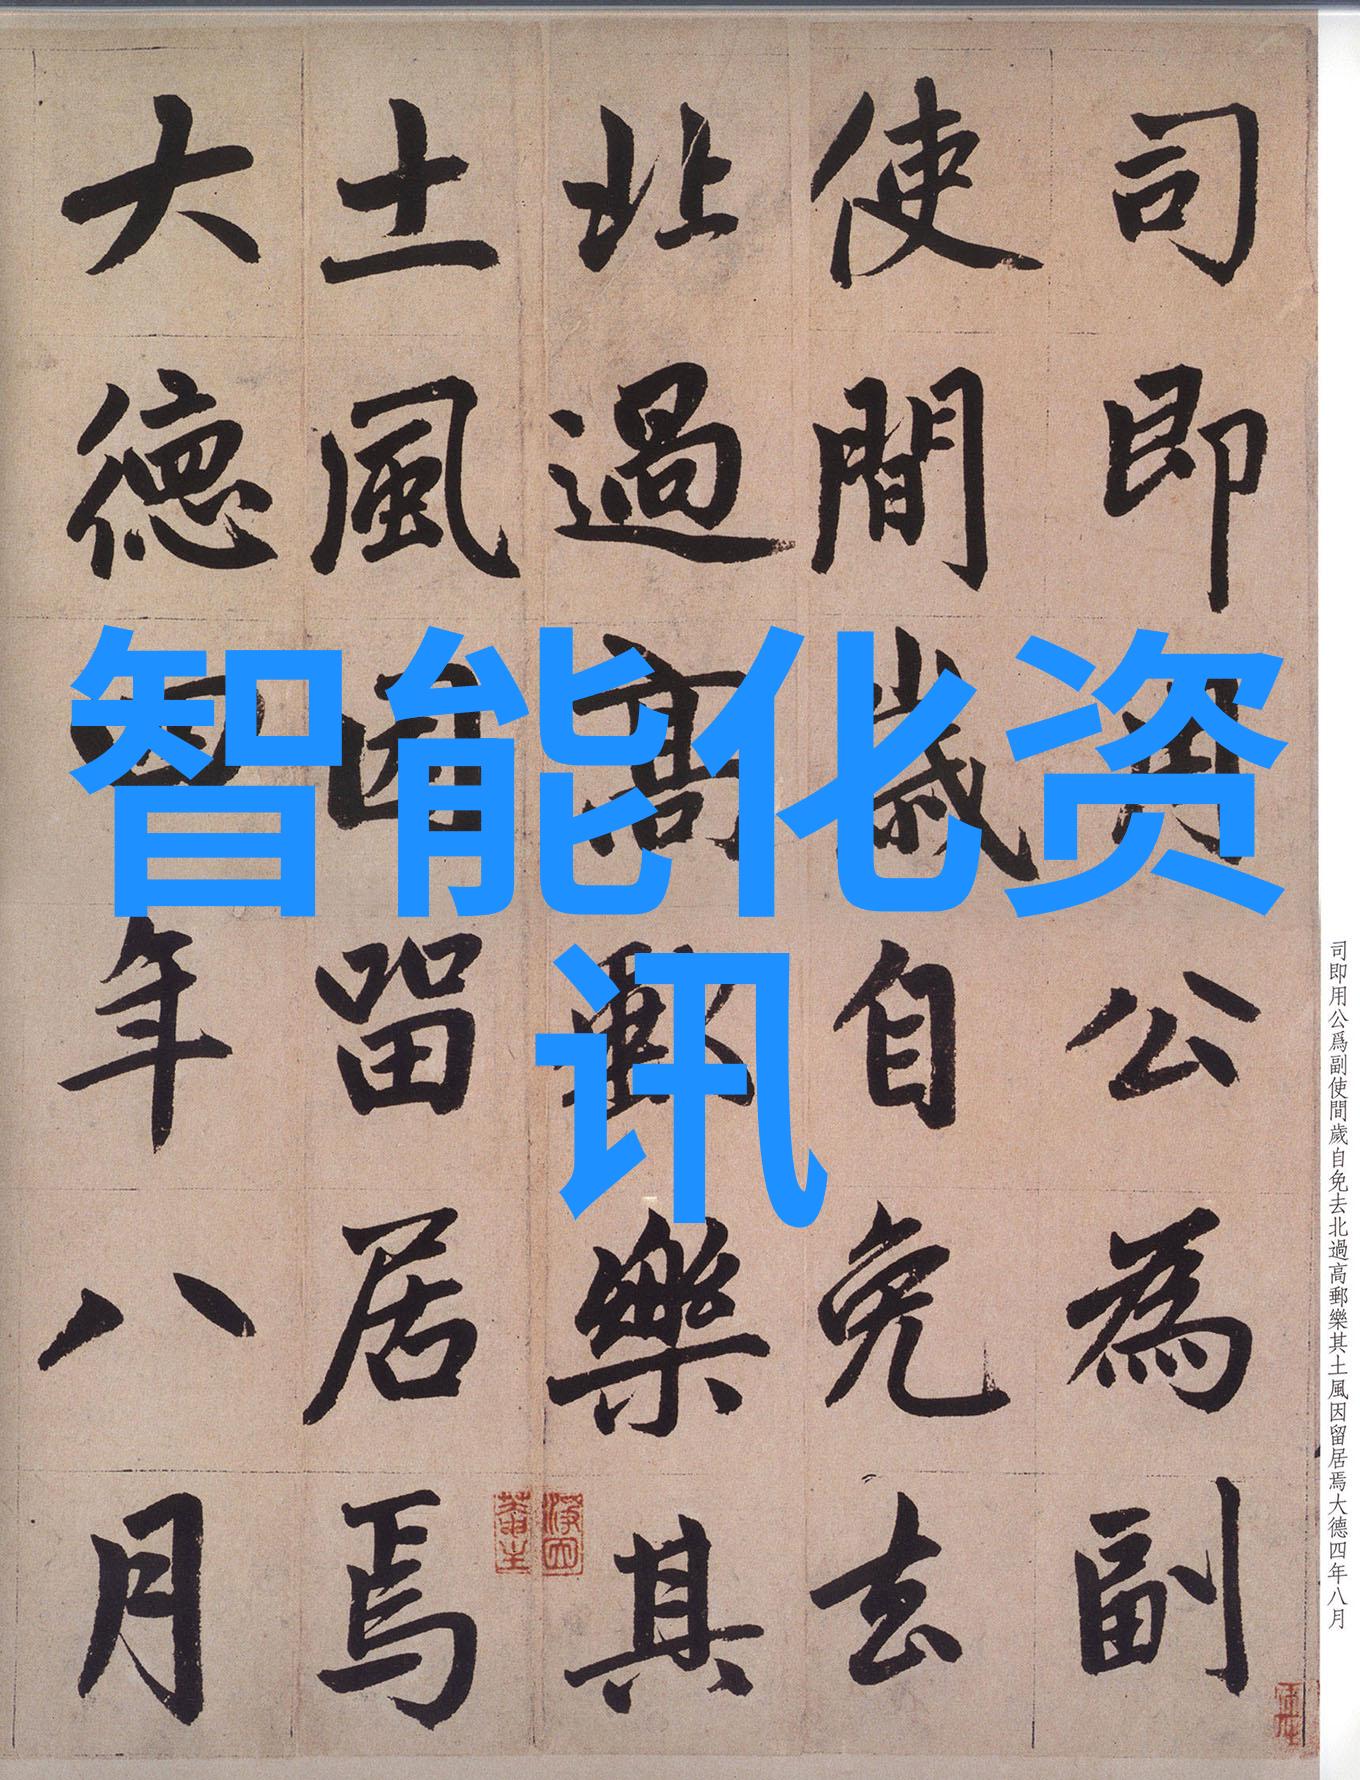 司即用公為副
使間歲自免去
北過高郵樂其
土風因留居焉
大德四年八月
智能化资
讯
司即用公爲副使間歲自免去北過高郵樂其土風因留居焉大德四年八月